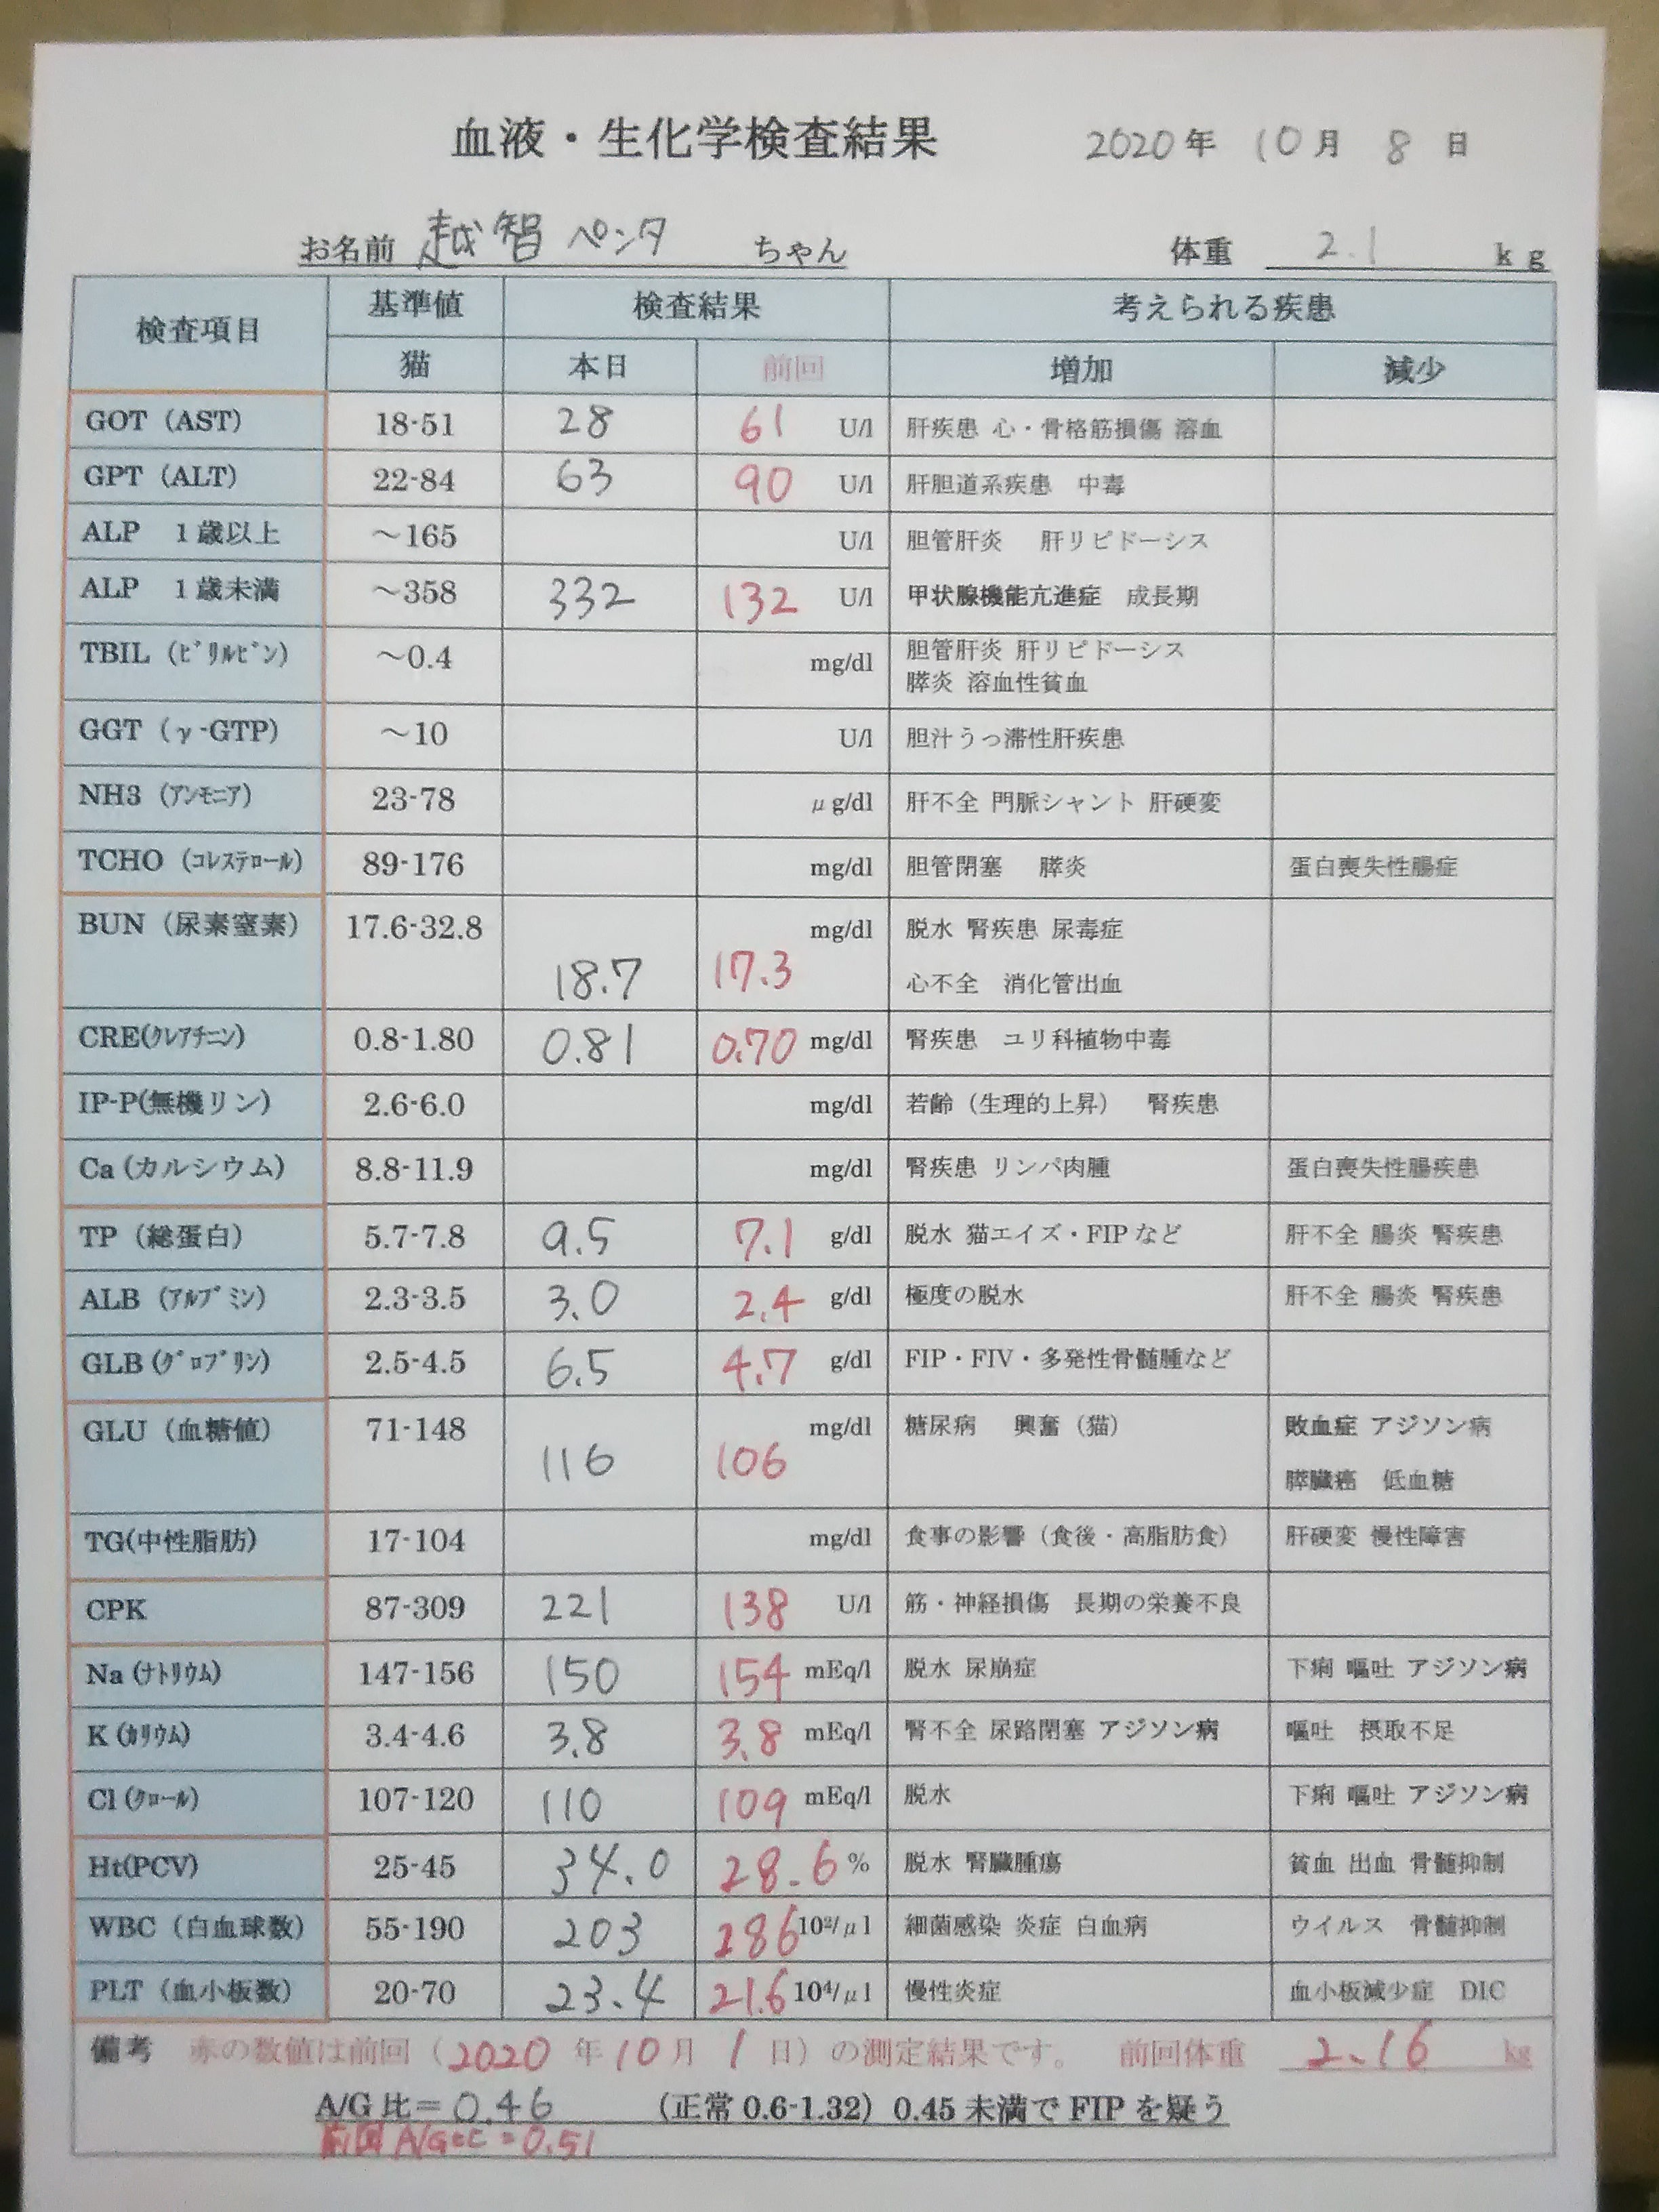 血液・生化学検査結果 2020年 10月 8日
お名前 越智 ペンタ ちゃん 体重 2.1 kg
検査項目 基準値 検査結果 考えられる疾患
猫 本日 前回 増加 減少
GOT (AST) 18-51 28 61 U/l 肝疾患 心・骨格筋損傷 溶血
GPT (ALT) 22-84 63 90 U/l 肝胆道系疾患 中毒
ALP 1歳以上 ～165 U/l 胆管肝炎 肝リピドーシス
ALP 1歳未満 ～358 332 132 U/l 甲状腺機能亢進症 成長期
TBIL (ﾋﾞﾘﾙﾋﾞﾝ) ～0.4 mg/dl 胆管肝炎 肝リピドーシス
膵炎 溶血性貧血
GGT (γ-GTP) ～10 U/l 胆汁うっ滞性肝疾患
NH3 (ｱﾝﾓﾆｱ) 23-78 μg/dl 肝不全 門脈シャント 肝硬変
TCHO (ｺﾚｽﾃﾛｰﾙ) 89-176 mg/dl 胆管閉塞 膵炎 蛋白喪失性腸症
BUN (尿素窒素) 17.6-32.8 18.7 17.3 mg/dl 脱水 腎疾患 尿毒症
心不全 消化管出血
CRE(ｸﾚｱﾁﾆﾝ) 0.8-1.80 0.81 0.70 mg/dl 腎疾患 ユリ科植物中毒
IP-P(無機リン) 2.6-6.0 mg/dl 若齢（生理的上昇） 腎疾患
Ca (カルシウム) 8.8-11.9 mg/dl 腎疾患 リンパ肉腫 蛋白喪失性腸疾患
TP (総蛋白) 5.7-7.8 9.5 7.1 g/dl 脱水 猫エイズ・FIPなど 肝不全 腸炎 腎疾患
ALB (ｱﾙﾌﾞﾐﾝ) 2.3-3.5 3.0 2.4 g/dl 極度の脱水 肝不全 腸炎 腎疾患
GLB (ｸﾞﾛﾌﾞﾘﾝ) 2.5-4.5 6.5 4.7 g/dl FIP・FIV・多発性骨髄腫など
GLU (血糖値) 71-148 116 106 mg/dl 糖尿病 興奮（猫） 敗血症 アジソン病
膵臓癌 低血糖
TG(中性脂肪) 17-104 mg/dl 食事の影響（食後・高脂肪食） 肝硬変 慢性障害
CPK 87-309 221 138 U/l 筋・神経損傷 長期の栄養不良
Na (ﾅﾄﾘｳﾑ) 147-156 150 154 mEq/l 脱水 尿崩症 下痢 嘔吐 アジソン病
K (ｶﾘｳﾑ) 3.4-4.6 3.8 3.8 mEq/l 腎不全 尿路閉塞 アジソン病 嘔吐 摂取不足
Cl (ｸﾛｰﾙ) 107-120 110 109 mEq/l 脱水 下痢 嘔吐 アジソン病
Ht(PCV) 25-45 34.0 28.6 % 脱水 腎臓腫瘍 貧血 出血 骨髄抑制
WBC (白血球数) 55-190 203 286 10²/μl 細菌感染 炎症 白血病 ウイルス 骨髄抑制
PLT (血小板数) 20-70 23.4 21.6 10⁴/μl 慢性炎症 血小板減少症 DIC
備考 赤の数値は前回（2020年10月1日）の測定結果です。 前回体重 2.16 kg
A/G比=0.46 （正常0.6-1.32）0.45未満でFIPを疑う
前回A/G比=0.51